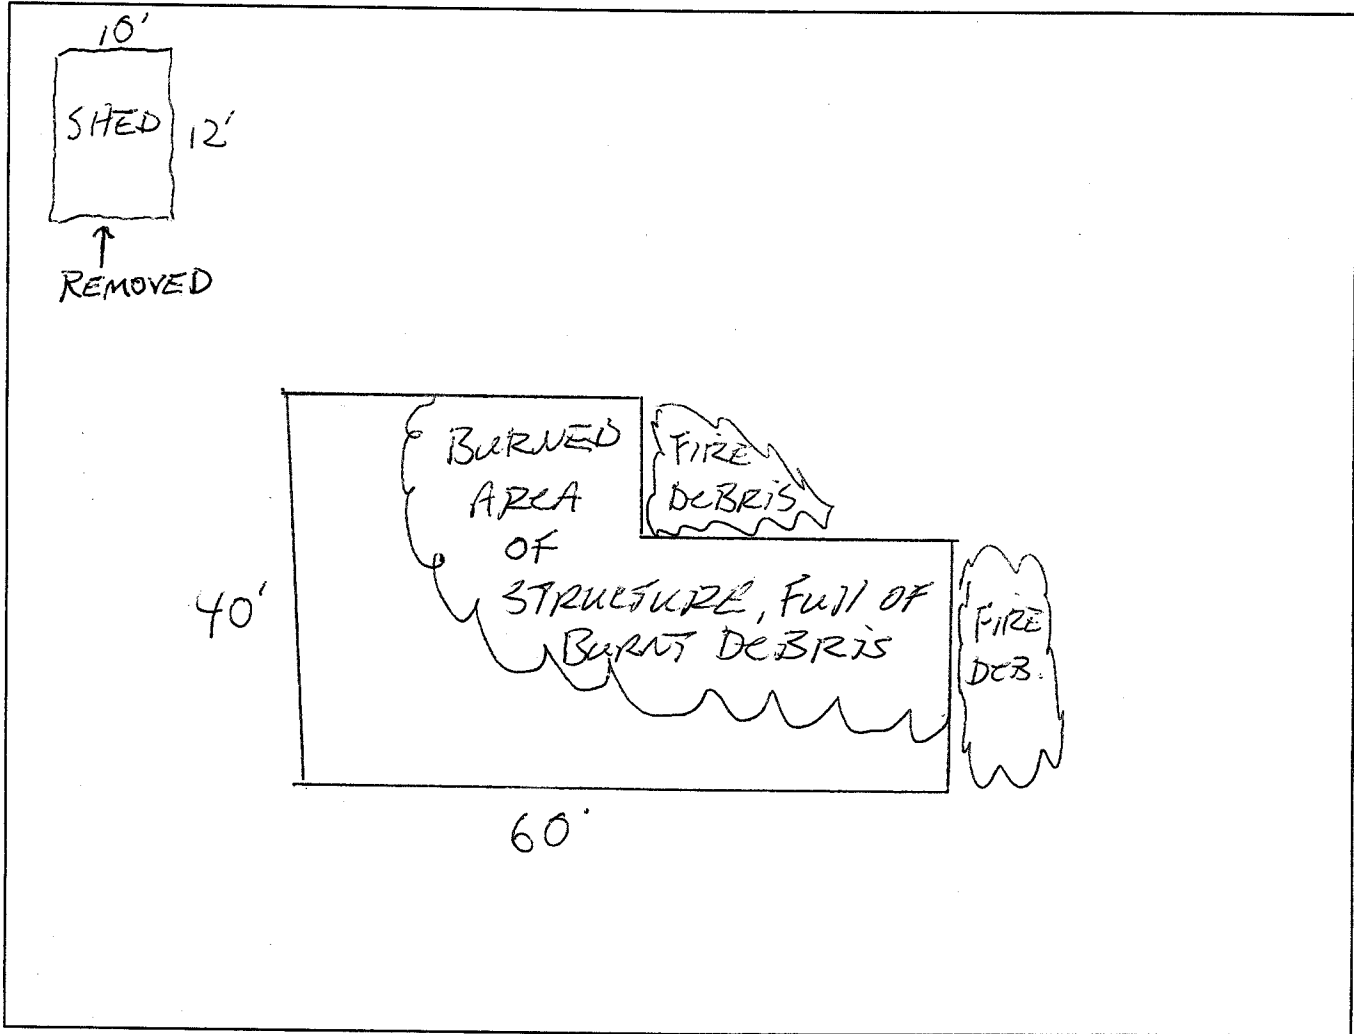 10'
SHED
12'
REMOVED
BURNED
AREA
OF
STRUCTURE, FULL OF
BURNT DEBRIS
FIRE
DEBRIS
FIRE
DEB.
40'
60'